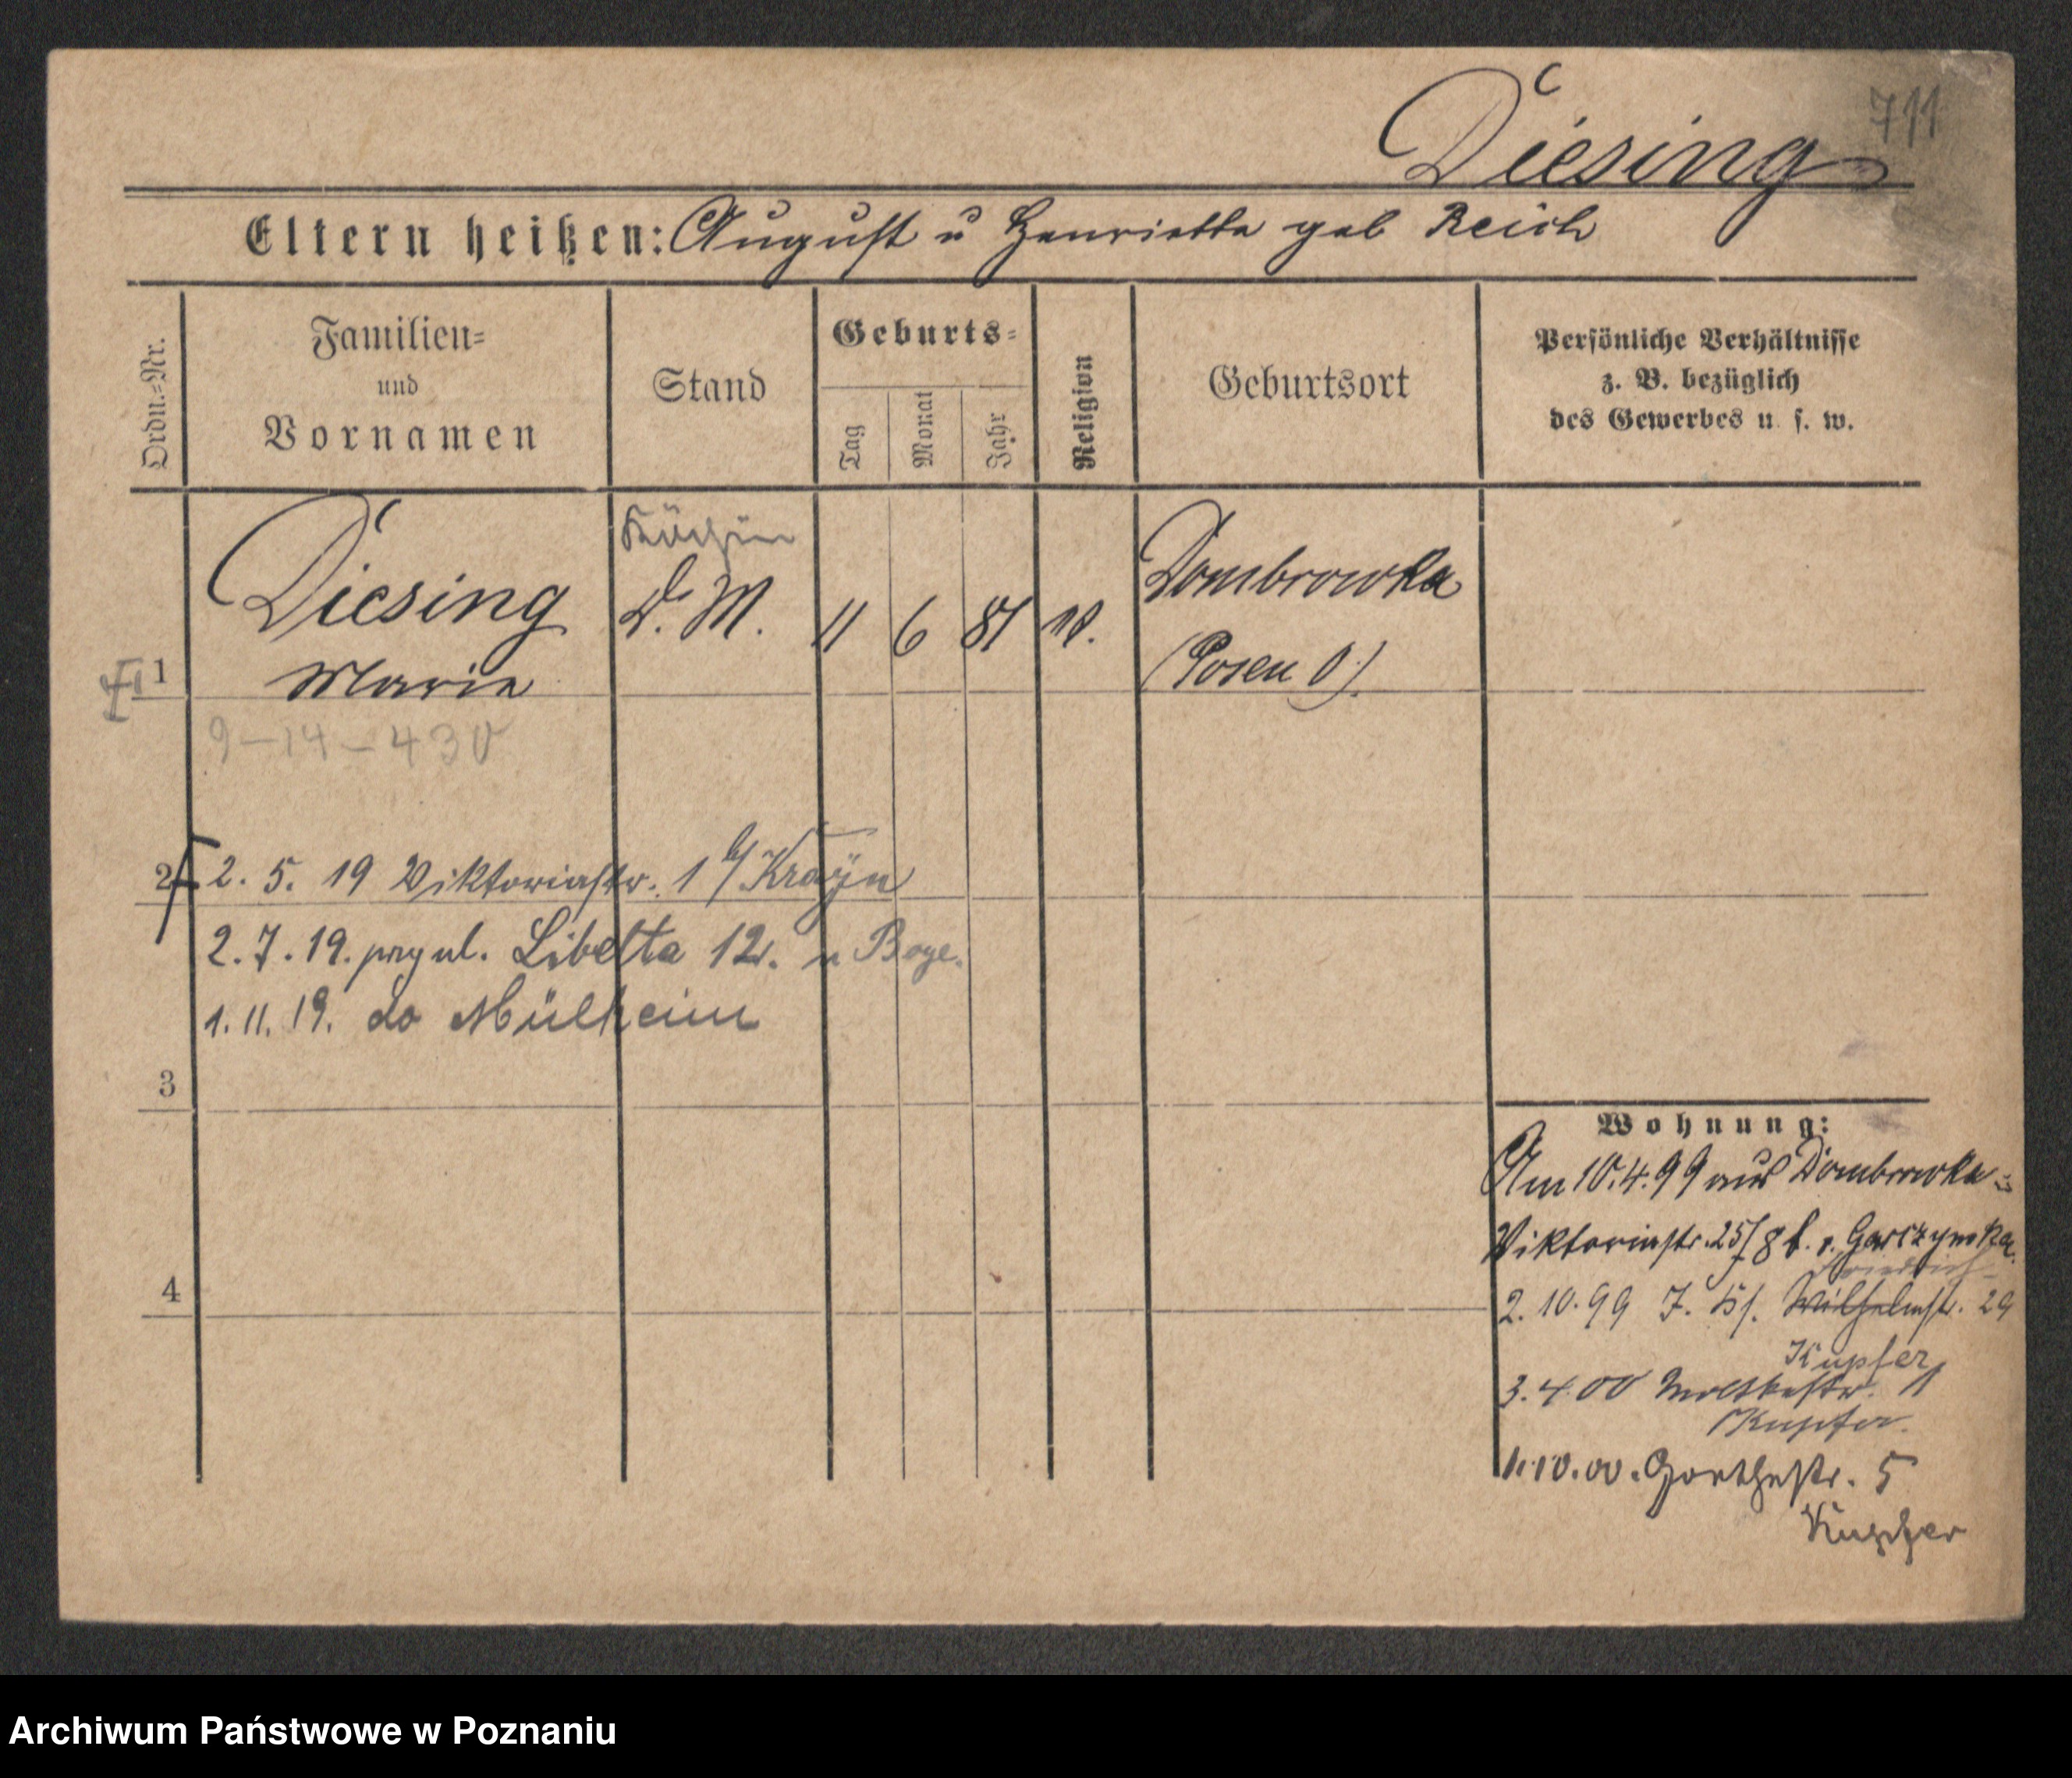 711
Diesing
Eltern heißen: August u Henriette geb Reich
Ordn.-Nr.
Familien-
und
Vornamen
Stand
Geburts-
Tag
Monat
Jahr
Religion
Geburtsort
Persönliche Verhältnisse
z. B. bezüglich
des Gewerbes u. s. w.
Köchin
Diesing
D. M.
11 6 81
Dombrowka
Marie
(Posen O.)
1
9-14-430
2
2. 5. 19 Viktoriastr. 1 b/ Krayn
2. 7. 19. przy ul. Libelta 12. u Boye.
1. 11. 19. do Mülheim
3
4
Wohnung:
Am 10.4.99 aus Dombrowka
Viktoriastr. 25/8 b. v. Garczynska
2. 10. 99 Wilhelmstr. 29
Kupfer
3. 4. 00 Moltkestr. 1
Kupfer.
1.10.00. Goethestr. 5
Kupfer
Archiwum Państwowe w Poznaniu